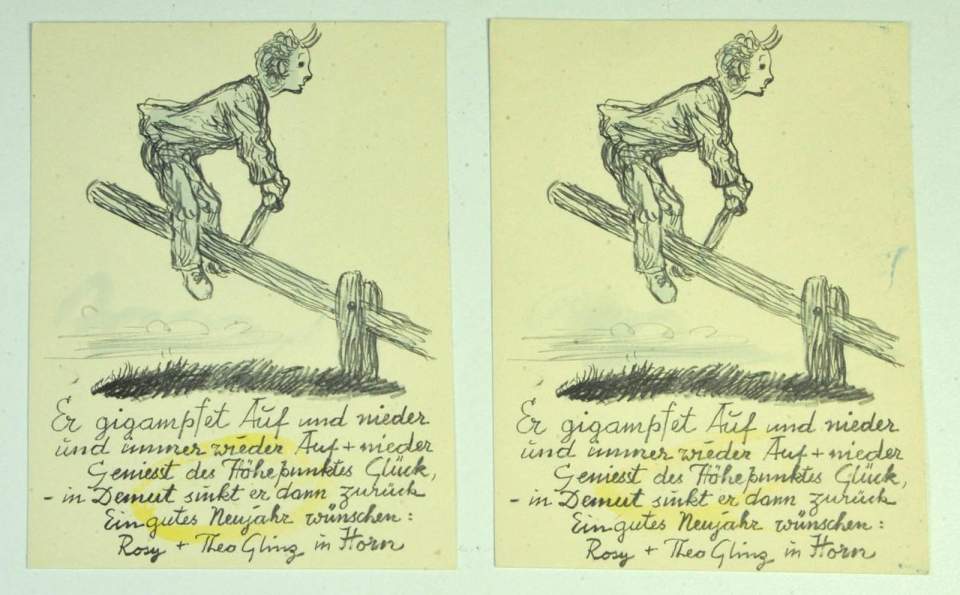 Er gigampfet Auf und nieder
und immer wieder Auf + nieder
Geniesst des Höhepunktes Glück,
- in Demut sinkt er dann zurück
Ein gutes Neujahr wünschen:
Rosy + Theo Glinz in Horn
Er gigampfet Auf und nieder
und immer wieder Auf + nieder
Geniesst des Höhepunktes Glück,
- in Demut sinkt er dann zurück
Ein gutes Neujahr wünschen:
Rosy + Theo Glinz in Horn